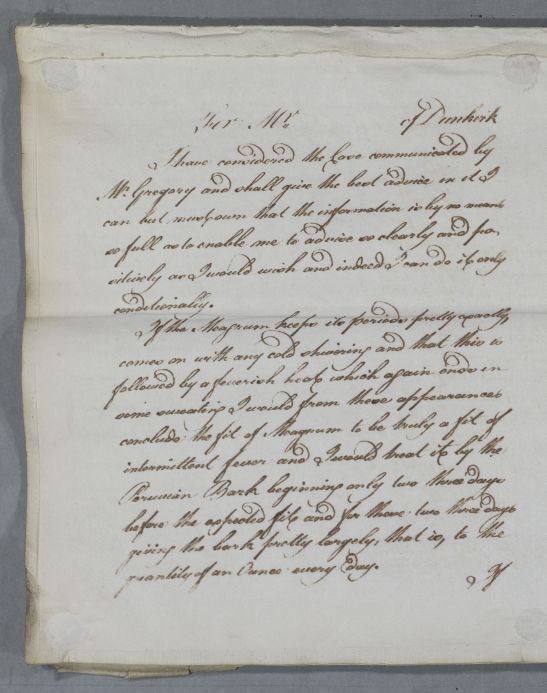 For Mr of Dunkirk
I have considered the Case communicated by
Mr Gregory and shall give the best advice in it I
can but must own that the information is by no means
so full as to enable me to advise so clearly and po,
sitively as I would wish and indeed I can do it only
conditionally.
If the Meagrum keeps its periods pretty exactly,
comes on with any cold shivering and that this is
followed by a feverish heat which again ends in
some sweating I would from these appearances
conclude the fit of Meagrum to be truly a fit of
intermittent fever and I would treat it by the
Peruvian Bark beginning only two three days
before the expected fit and for these two three days
giving the bark pretty largely, that is, to the
quantity of an Ounce every day.
If